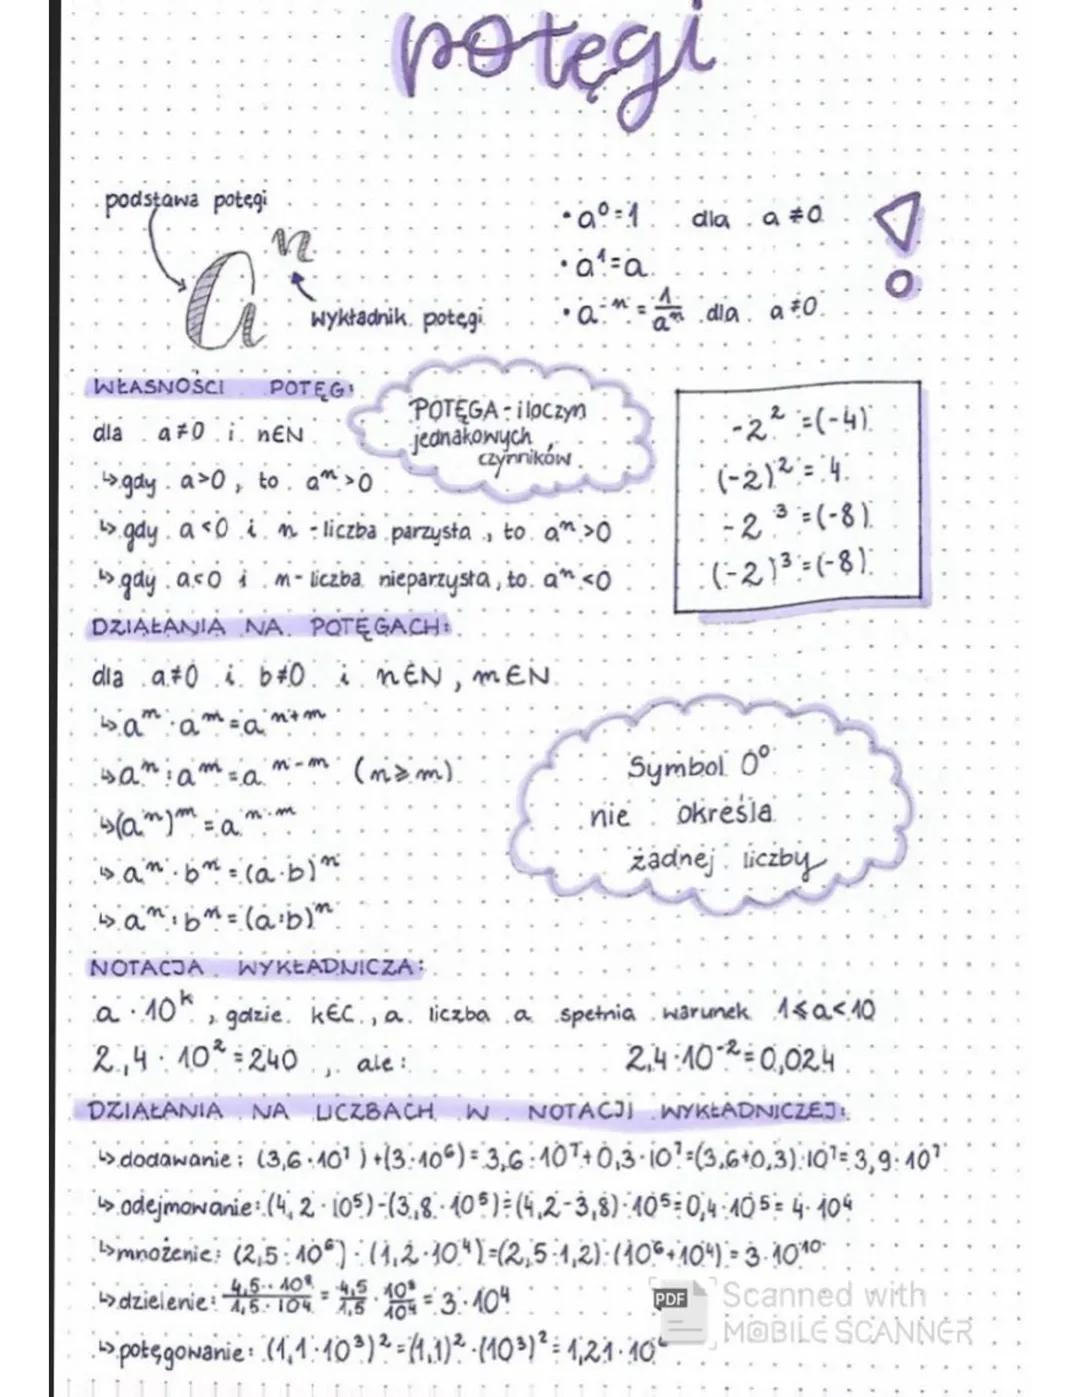 potęgi
podstawa potęgi
aⁿ
wykładnik potęgi
• a⁰=1 dla a≠0
• a¹=a
• a⁻ⁿ = 1/aⁿ dla a≠0
WŁASNOŚCI POTĘG:
dla a≠0 i n∈N
↳ gdy a>0, to aⁿ>0
↳ gdy a<0 i n - liczba parzysta, to aⁿ>0
↳ gdy a<0 i n - liczba nieparzysta, to aⁿ<0
POTĘGA - iloczyn
jednakowych
czynników
-2² =(-4)
(-2)² = 4
-2³ =(-8)
(-2)³ =(-8)
DZIAŁANIA NA POTĘGACH:
dla a≠0 i b≠0 i n∈N, m∈N
↳ aⁿ · aᵐ = aⁿ⁺ᵐ
↳ aⁿ : aᵐ = aⁿ⁻ᵐ (n≥m)
↳ (aⁿ)ᵐ = aⁿ·ᵐ
↳ aⁿ · bⁿ = (a·b)ⁿ
↳ aⁿ : bⁿ = (a:b)ⁿ
Symbol 0⁰
nie określa
żadnej liczby
NOTACJA WYKŁADNICZA:
a · 10ᵏ, gdzie k∈C, a liczba a spełnia warunek 1≤a<10
2,4 · 10² = 240, ale: 2,4·10⁻² = 0,024
DZIAŁANIA NA LICZBACH W NOTACJI WYKŁADNICZEJ:
↳ dodawanie: (3,6·10⁷)+(3·10⁶) = 3,6·10⁷+0,3·10⁷=(3,6+0,3)·10⁷= 3,9·10⁷
↳ odejmowanie: (4,2·10⁵)-(3,8·10⁵)=(4,2-3,8)·10⁵=0,4·10⁵= 4·10⁴
↳ mnożenie: (2,5·10⁶)·(1,2·10⁴)=(2,5·1,2)·(10⁶+10⁴) = 3·10¹⁰
↳ dzielenie: 4,5·10⁸/1,5·10⁴ = 4,5/1,5 · 10⁸/10⁴ = 3·10⁴
↳ potęgowanie: (1,1·10³)²=(1,1)²·(10³)²= 1,21·10⁶
PDF Scanned with
MOBILE SCANNER